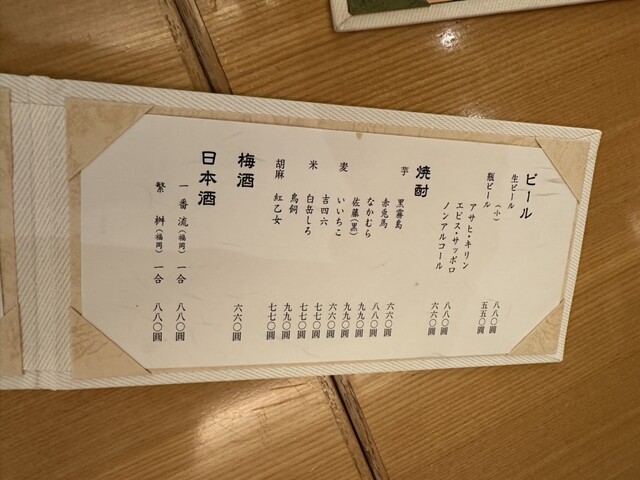 ビール
生ビール 八八〇圓
(小) 五五〇圓
瓶ビール
アサヒ・キリン
エビス・サッポロ 八八〇圓
ノンアルコール 六六〇圓
焼酎
芋 黒霧島 六六〇圓
赤兎馬 八八〇圓
なかむら 九九〇圓
佐藤(黒) 九九〇圓
麦 いいちこ 六六〇圓
吉四六 七七〇圓
米 白岳しろ 七七〇圓
鳥飼 九九〇圓
胡麻 紅乙女 七七〇圓
梅酒 六六〇圓
日本酒
一番流(福岡) 一合 八八〇圓
繁桝(福岡) 一合 八八〇圓